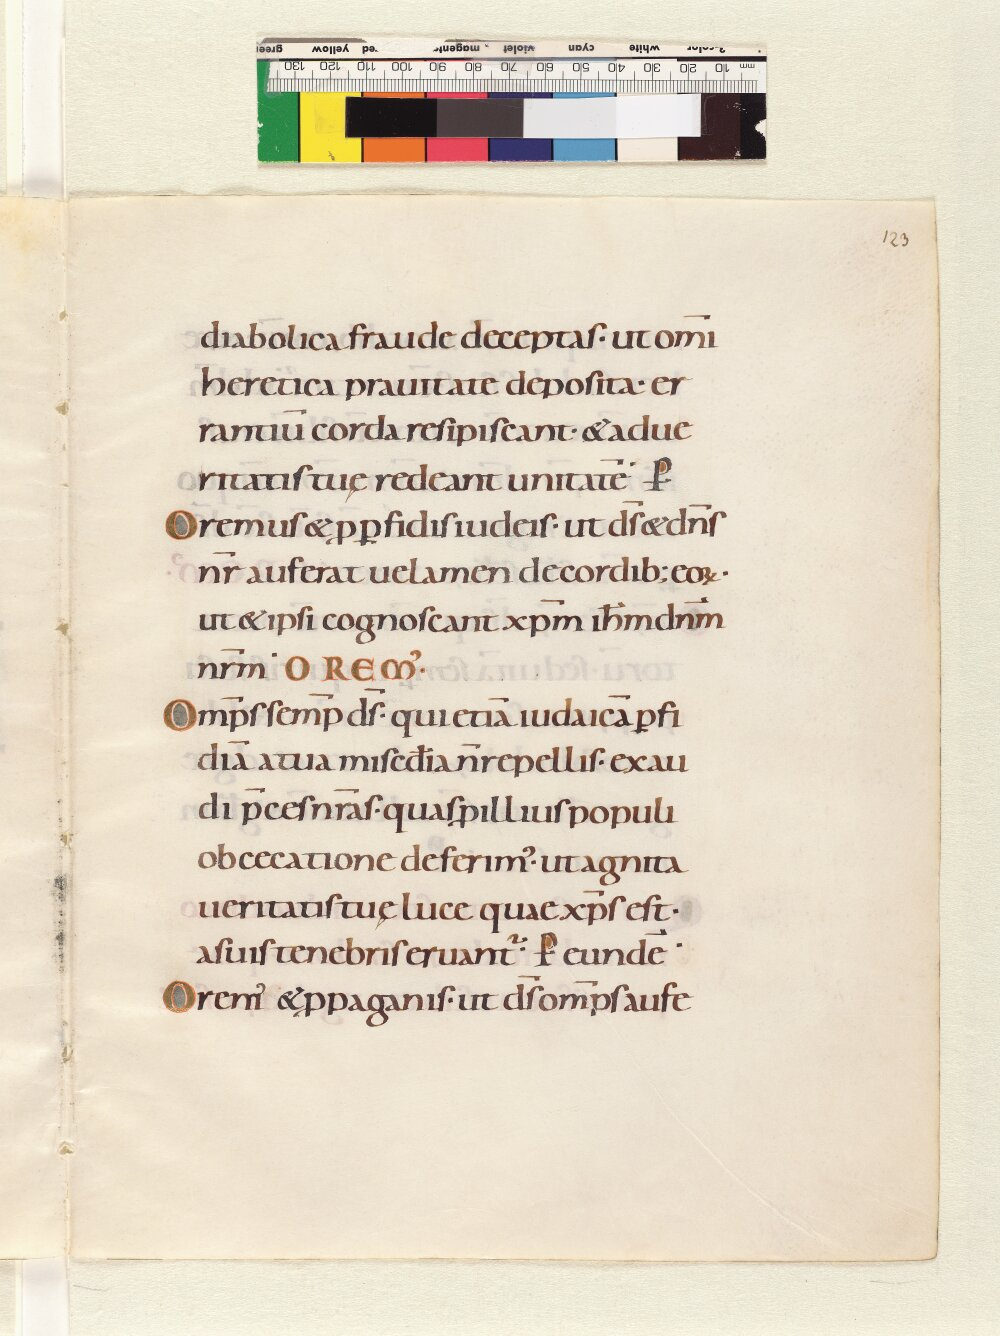 green yellow red magenta violet cyan white 3-color
130 120 110 100 90 80 70 60 50 40 30 20 10 mm
123
diabolica fraude deceptas· ut om̄i
heretica prauitate deposita· er
rantiū corda resipiscant· & adue
ritatis tuę redeant unitatē· P̱
Oremus & p ꝑfidis iudeis· ut d̄s & dn̄s
nr̄ auferat uelamen de cordib; eoꝝ·
ut & ipsi cognoscant xp̄m ih̄m dnm̄
nr̄m· OREMꝰ·
Omp̄s semp̄ d̄s· qui etiā iudaicā ꝑfi
diā a tua misedīa n̄ repellis· exau
di p̄ces nr̄as· quas ꝓ illius populi
obcecatione deferimꝰ· ut agnita
ueritatis tuę luce quae xp̄s est·
a suis tenebris eruant᷑· P̱ eundē·
Oremꝰ & ꝓ paganis· ut d̄s omp̄s aufe